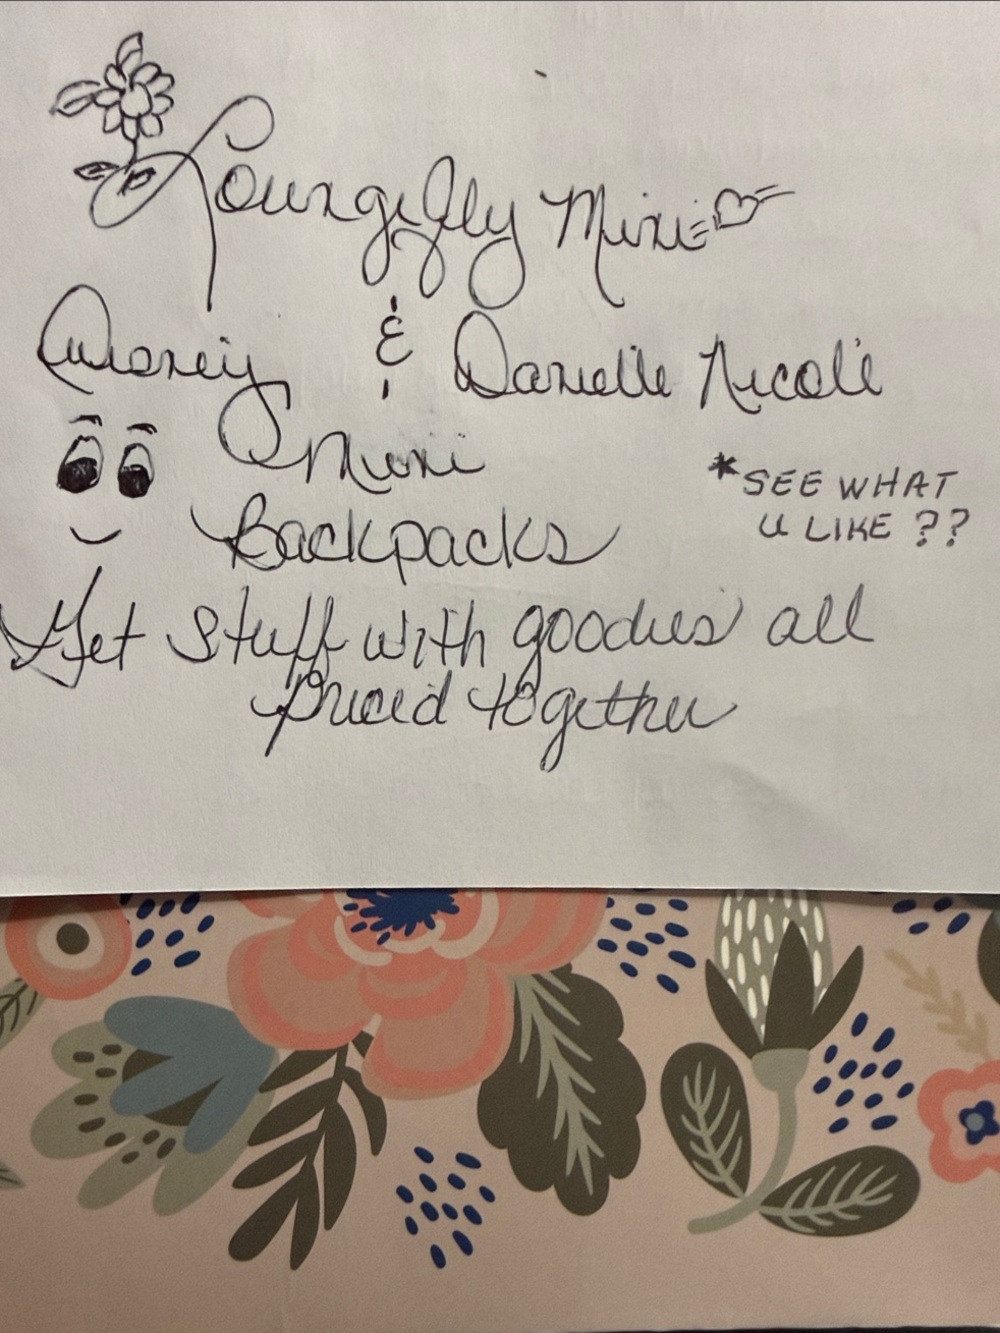 Loungefly Mini
& 
Disney Danielle Nicole
Mini
Backpacks
*SEE WHAT
U LIKE ??
Get stuff with goodies all
priced together